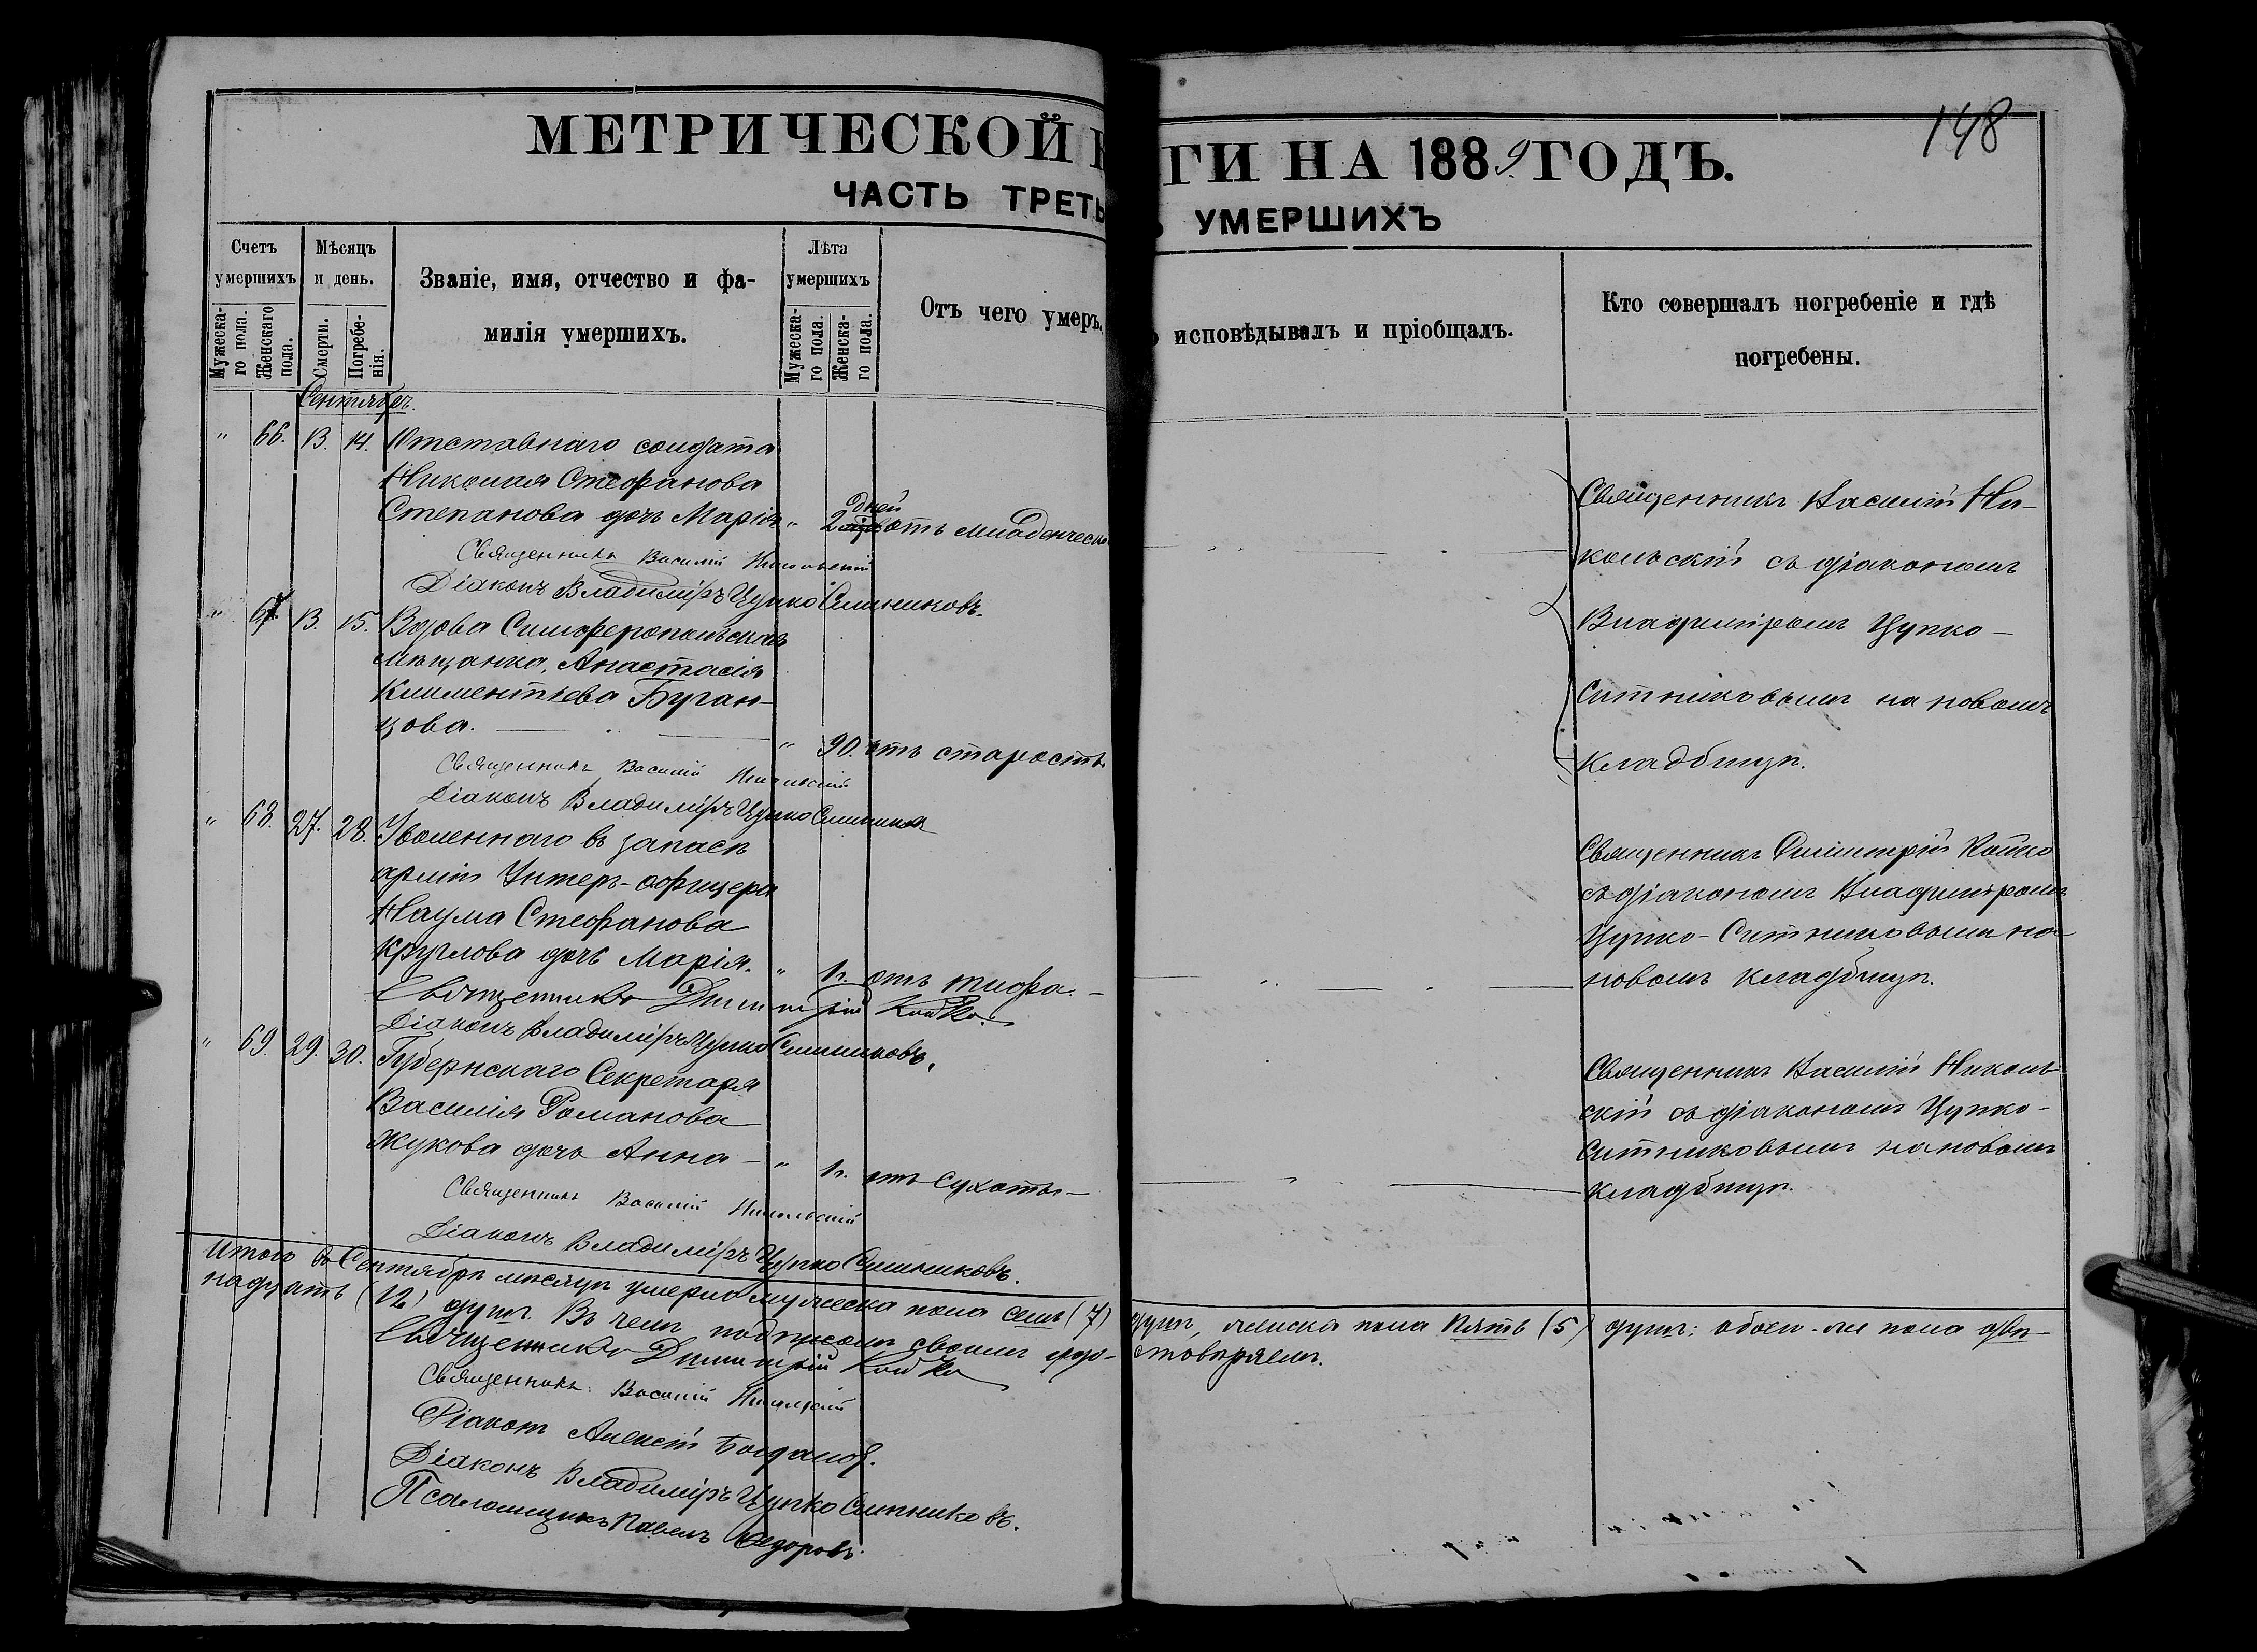 МЕТРИЧЕСКОЙ К
ЧАСТЬ ТРЕТЬ
Счетъ умершихъ
Мужеска-
го пола.
Женскаго
пола.
Мѣсяцъ и день.
Смерти.
Погребе-
нія.
Званіе, имя, отчество и фа-
милія умершихъ.
Лѣта умершихъ
Мужеска-
го пола.
Женска-
го пола.
Отъ чего умеръ.
Сентябрь.
" 66. 13. 14. Отставнаго солдата
Николая Стефанова
Степанова дочь Марія " 2 дней отъ младенческ
Священникъ Василій Никольскій
Діаконъ Владиміръ Цупко Ситниковъ.
" 67. 13. 15. Вдова Симферопольская
мѣщанка, Анастасія
Климентіева Буган-
цова. " 90. отъ старости
Священникъ Василій Никольскій
Діаконъ Владиміръ Цупко Ситников
" 68. 27. 28. Уволеннаго въ запасъ
арміи Унтеръ-офицера
Наума Стефанова
Круглова дочь Марія. " 1 г. отъ тифа.
Священникъ Димитрій Койко
Діаконъ Владиміръ Цупко Ситниковъ.
" 69. 29. 30. Губернскаго Секретаря
Василія Романова
Жукова дочь Анна " 1 г. отъ сухоты
Священникъ Василій Никольскій
Діаконъ Владиміръ Цупко Ситниковъ.
Итого въ Сентябрѣ мѣсяцѣ умерло мужеска пола семь (7)
надцать (12) душъ. Въ чемъ подписомъ своимъ удо-
Священникъ Димитрій Койко
Священникъ Василій Никольскій
Діаконъ Алексій Богданов.
Діаконъ Владиміръ Цупко Ситниковъ.
Псаломщикъ Павелъ Федоровъ.
148
ГИ НА 1889 ГОДЪ.
УМЕРШИХЪ
исповѣдывалъ и пріобщалъ.
Кто совершалъ погребеніе и гдѣ
погребены.
Священникъ Василій Ни-
кольскій съ діакономъ
Владиміромъ Цупко-
Ситниковымъ на новомъ
кладбищѣ.
Священникъ Димитрій Койко
съ діакономъ Владиміромъ
Цупко-Ситниковымъ на
новомъ кладбищѣ.
Священникъ Василій Николь-
скій съ діакономъ Цупко-
Ситниковымъ на новомъ
кладбищѣ.
душъ, женска пола пять (5) душъ: обоего же пола двѣ-
стовѣряемъ.